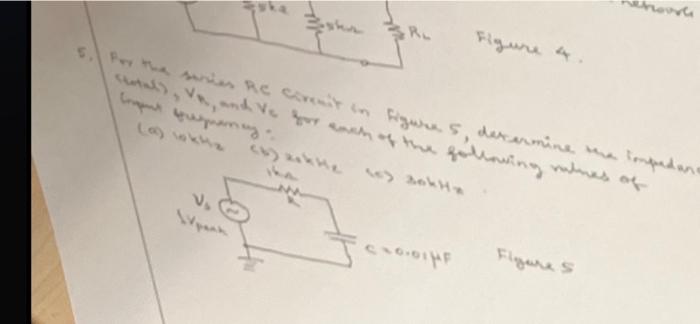 network
5kΩ
5kΩ
RL
Figure 4.
5. For the series RC Circuit in Figure 5, determine the impedance
(total), VR, and Vc for each of the following values of
input frequency:
(a) 10kHz (b) 20kHz (c) 30kHz.
1kΩ
R
Vs
1Vpeak
C=0.01μF
Figure 5